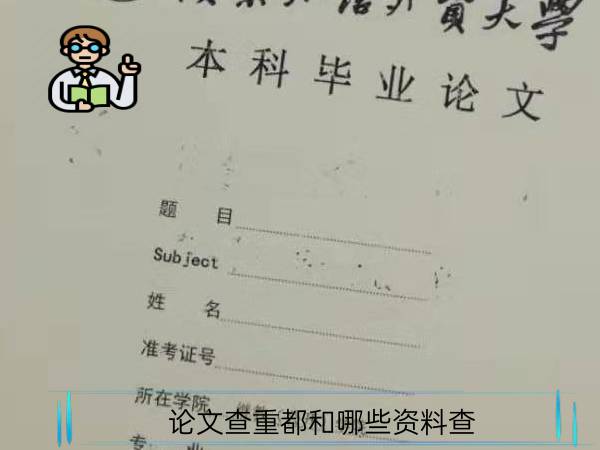 外貿大學
本科毕业论文
题 目
Subject
姓 名
准考证号
所在学院
专 业
论文查重都和哪些资料查